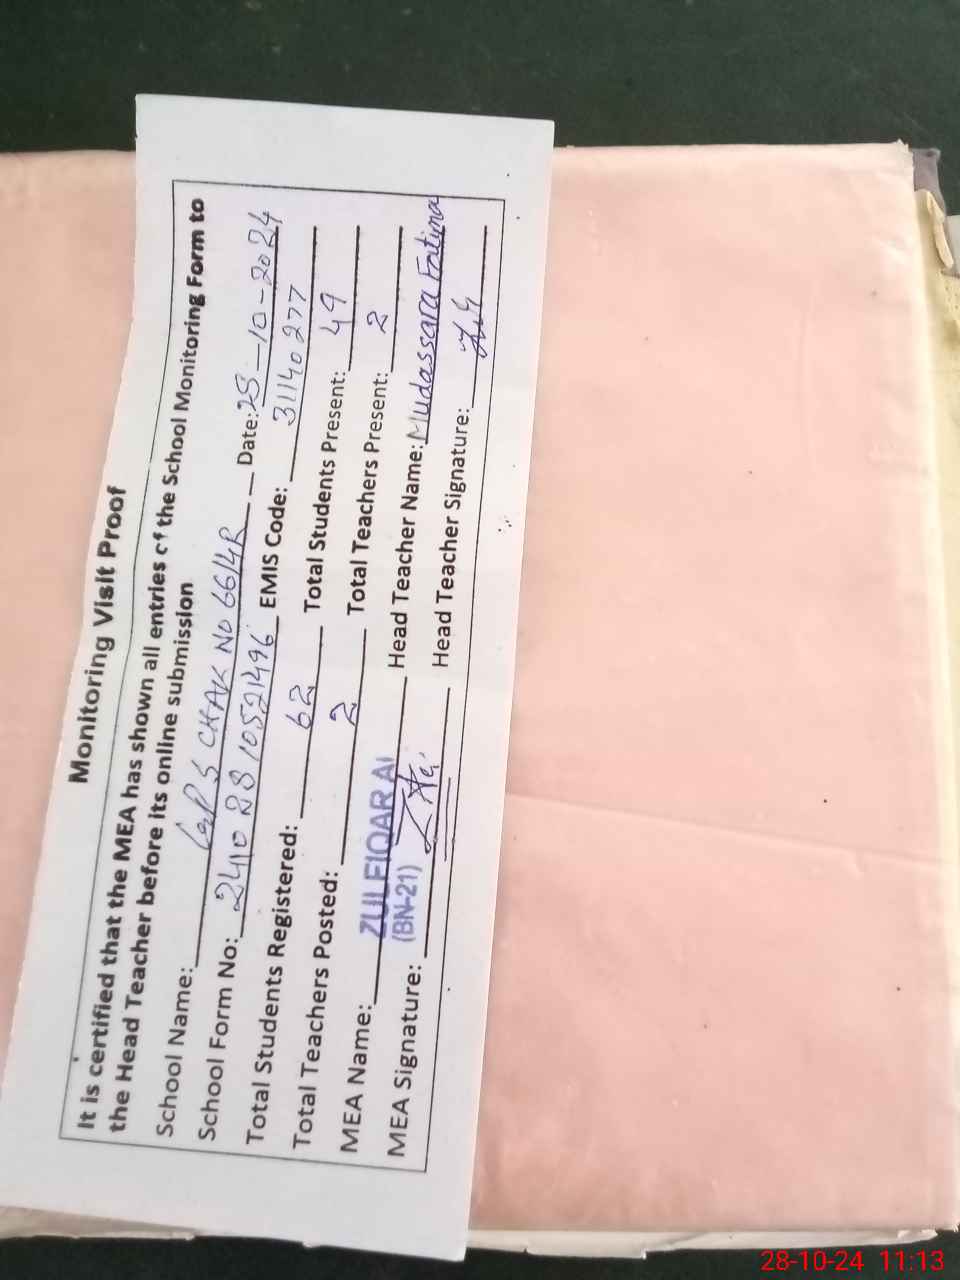 Monitoring Visit Proof
It is certified that the MEA has shown all entries of the School Monitoring Form to
the Head Teacher before its online submission
School Name: GPS CHAK NO 66/4R Date: 28-10-2024
School Form No: 241028 10521496 EMIS Code: 31140277
Total Students Registered: 62 Total Students Present: 49
Total Teachers Posted: 2 Total Teachers Present: 2
MEA Name: ZULFIQAR ALI Head Teacher Name: Mudassara Fatima
(BN-21)
MEA Signature: Head Teacher Signature:
28-10-24 11:13